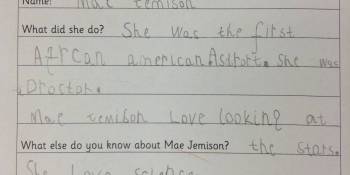 Name: Mae Jemison
What did she do? She was the first
African american Astrort. She was
Droctor.
Mae Jemison Love looking at
What else do you know about Mae Jemison? the stars.
She Love science